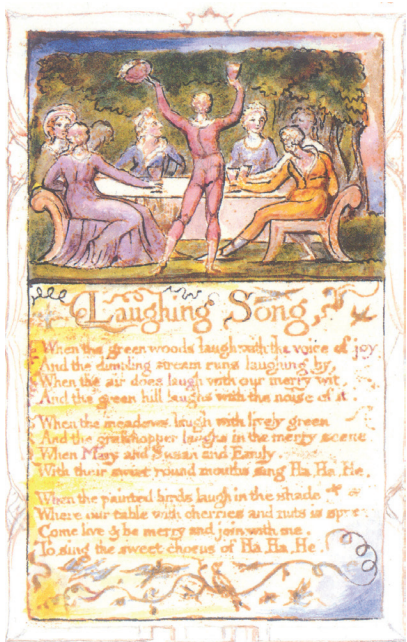 Laughing Song,
When the green woods laugh with the voice of joy
And the dimpling stream runs laughing by,
When the air does laugh with our merry wit,
And the green hill laughs with the noise of it.
When the meadows laugh with lively green
And the grasshopper laughs in the merry scene
When Mary and Susan and Emily.
With their sweet round mouths sing Ha, Ha, He.
When the painted birds laugh in the shade
Where our table with cherries and nuts is spread
Come live & be merry and join with me.
To sing the sweet chorus of Ha, Ha, He.